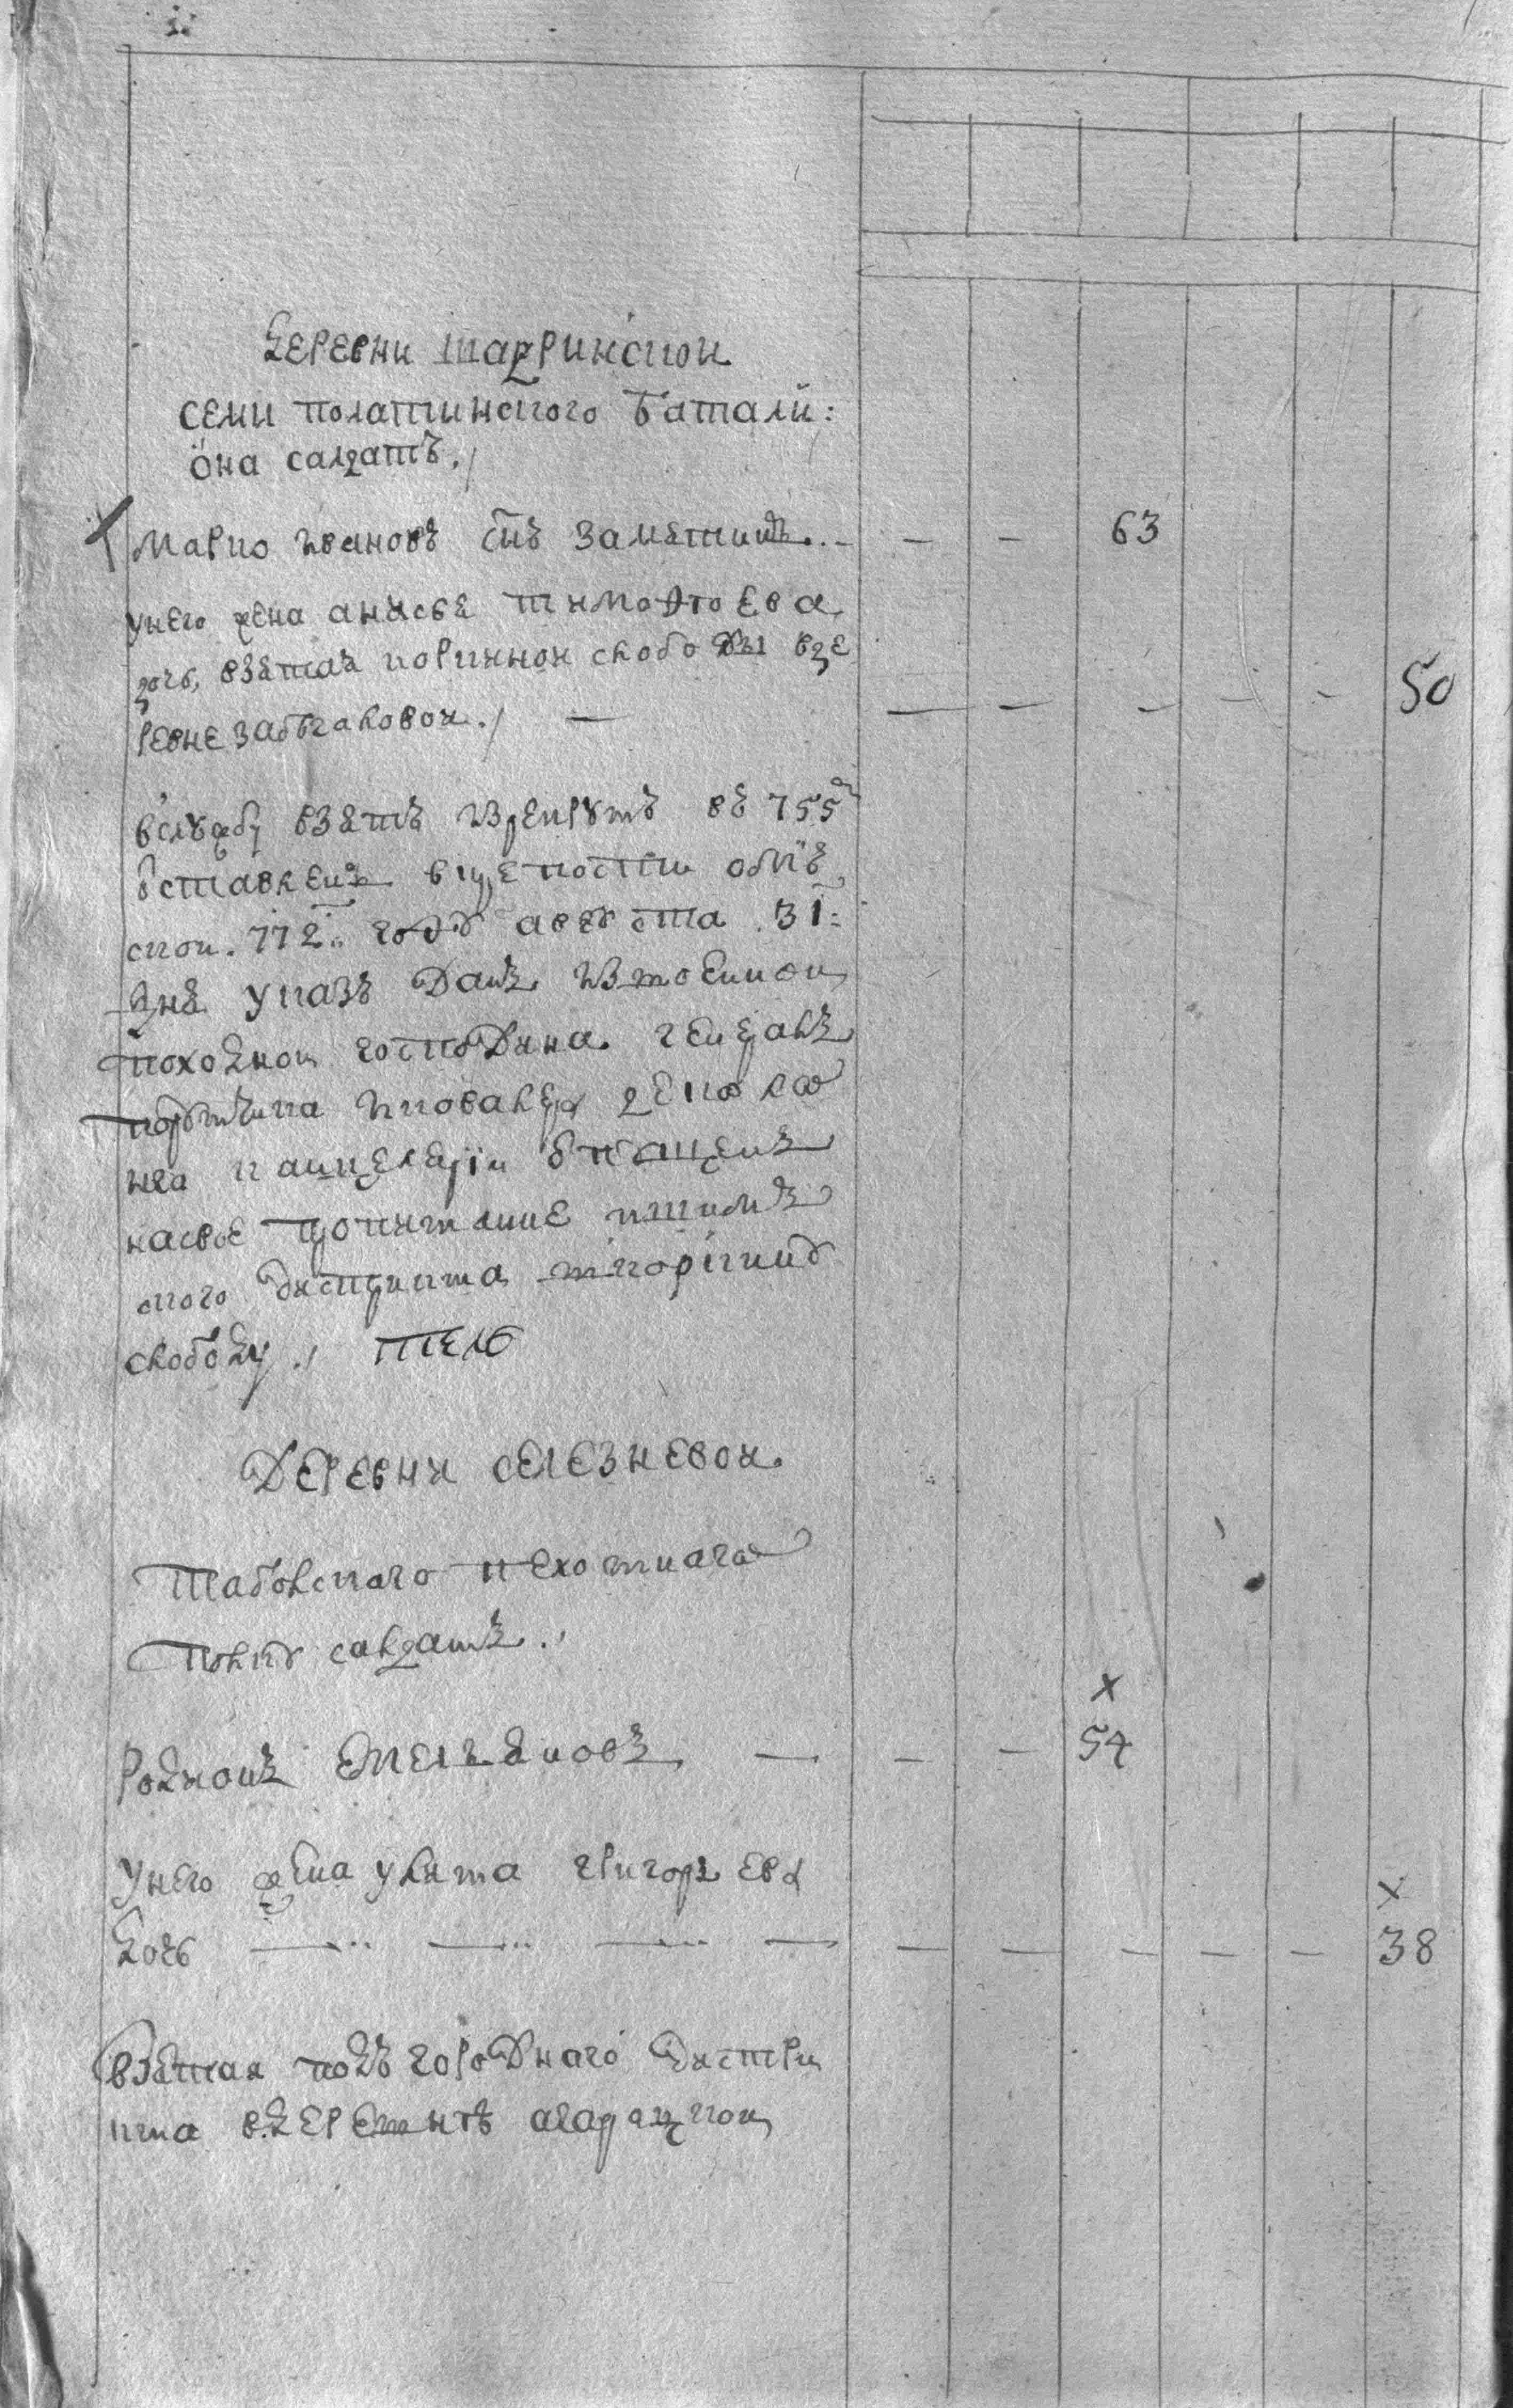 деревни шадринскои
семи полатинского баталИ:
она салдатъ./
Марко ивановъ снъ заметнинъ..- - - 63
унего жена анисья тимофеева
дочь, взятая коркиннои слободы вде
ревне забегаловои./ — — — — - - 50
вслужбу взятъ врекрутъ въ 755м
оставленъ вкрепости омъ
скои. 772: году августа 31:
дня указъ данъ изтоемкои
походнои господина генералъ
порутчика ковалера деколо
нга канцелярiи отпущенъ
насвое пропитание ишимъ
ского дистрикта
слободу./
деревни селезневои.
Таболскаго пехотнаго
полку салдатъ.,
Родионъ Емельяновъ — - - 54
Унего жена улита григорьева
дочь — — — — — — - - - 38
взятая подъ городнаго дистри
кта вдеревне